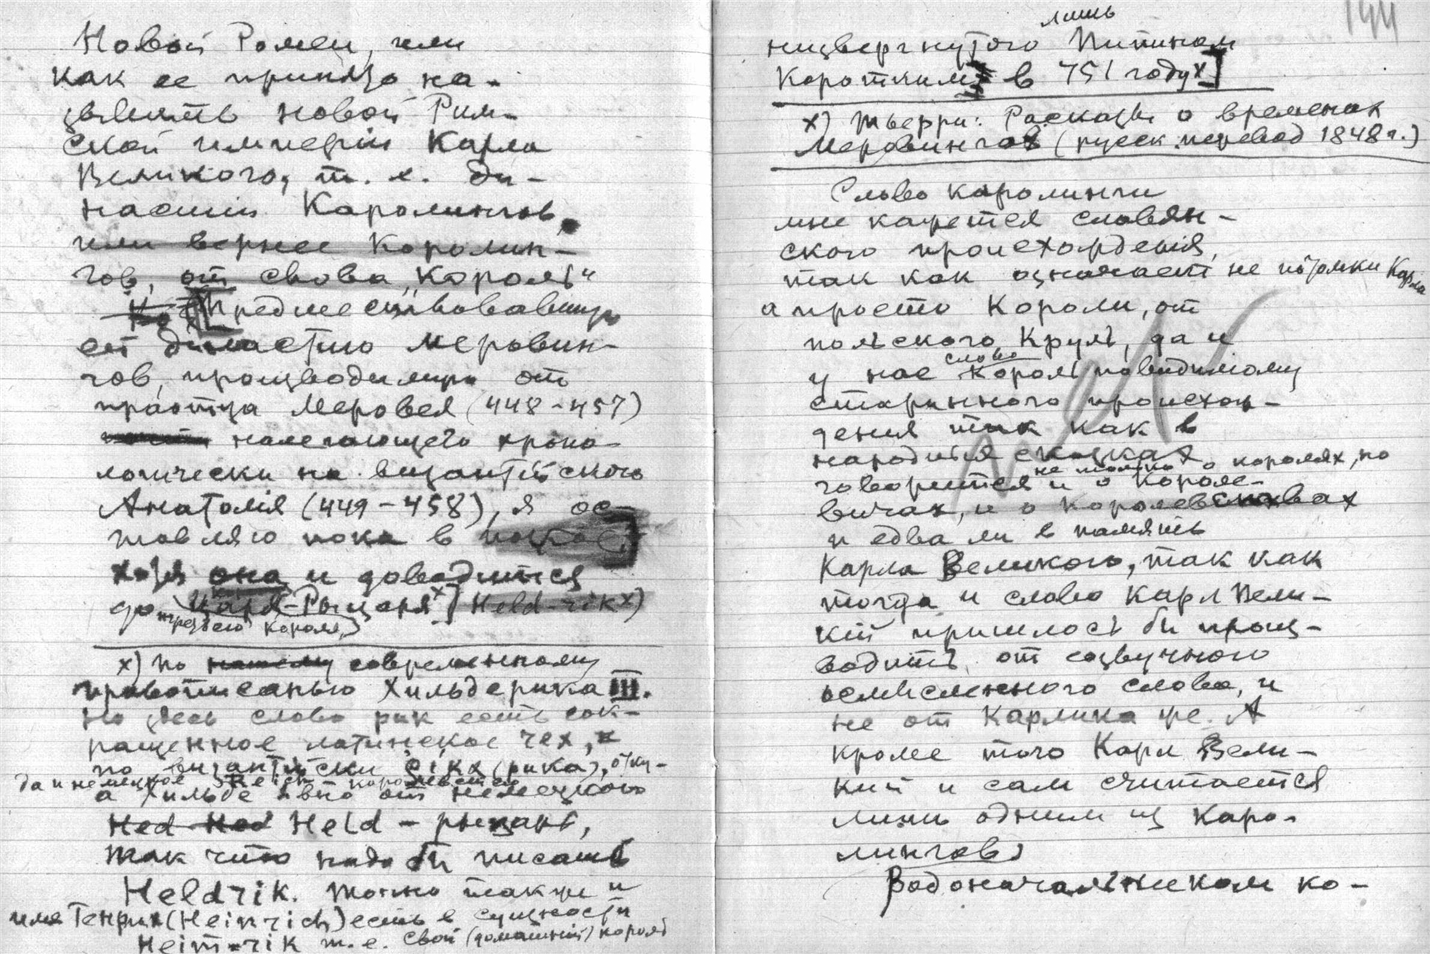 Новой Ромеи, или
как ее принято на-
зывать новой Рим-
ской империи Карла
Великого, т. е. ди-
настии Каролингов,
или вернее Королин-
гов, от слова „Король“
Предшествовавшую
ей династию Меровин-
гов, производимую от
праотца Меровея (448-457)
налегающего хроно-
логически на византийского
Анатолія (449-458), я ос-
тавляю пока в
хотя она и доводится
до Царя-Рыцаря x] Held-rik x)
трезваго короля)
x) по нашему современному
правописанью Хильдерика III.
Но здесь слово рик есть сок-
ращенное латинское rex,
по византійски (рика), отку-
да и немецкое Reich королевство
а Хильде явно от немецкого
Hed Hed Held - рыцарь,
так что надо бы писать
Heldrik. Точно также и
имя Генрих (Heinrich) есть в сущности
Heim-rik т.е. свой (домашній) король
144
лишь
низвергнутого Пипином
Коротким в 751 году x]
x) Тьерри: Расказы о временах
Меровингов (русск. перевод 1848 г.)
Слово каролинги
мне кажется славян-
ского происхождения,
так как означает не потомки Карла
а просто Короли, от
польского Круль, да и
слово
у нас король повидимому
старинного происхож-
дения так как в
народных сказках
не только о королях, но
говорится и о Короле-
вичах, и о королевствах
и едва ли в память
Карла Великого, так как
тогда и слово Карл Вели-
кій пришлось бы произ-
водить от созвучного
осмысленного слова, и
не от Карлика же. А
кроме того Карл Вели-
кий и сам считается
лишь одним из Каро-
лингов)
Родоначальником ко-